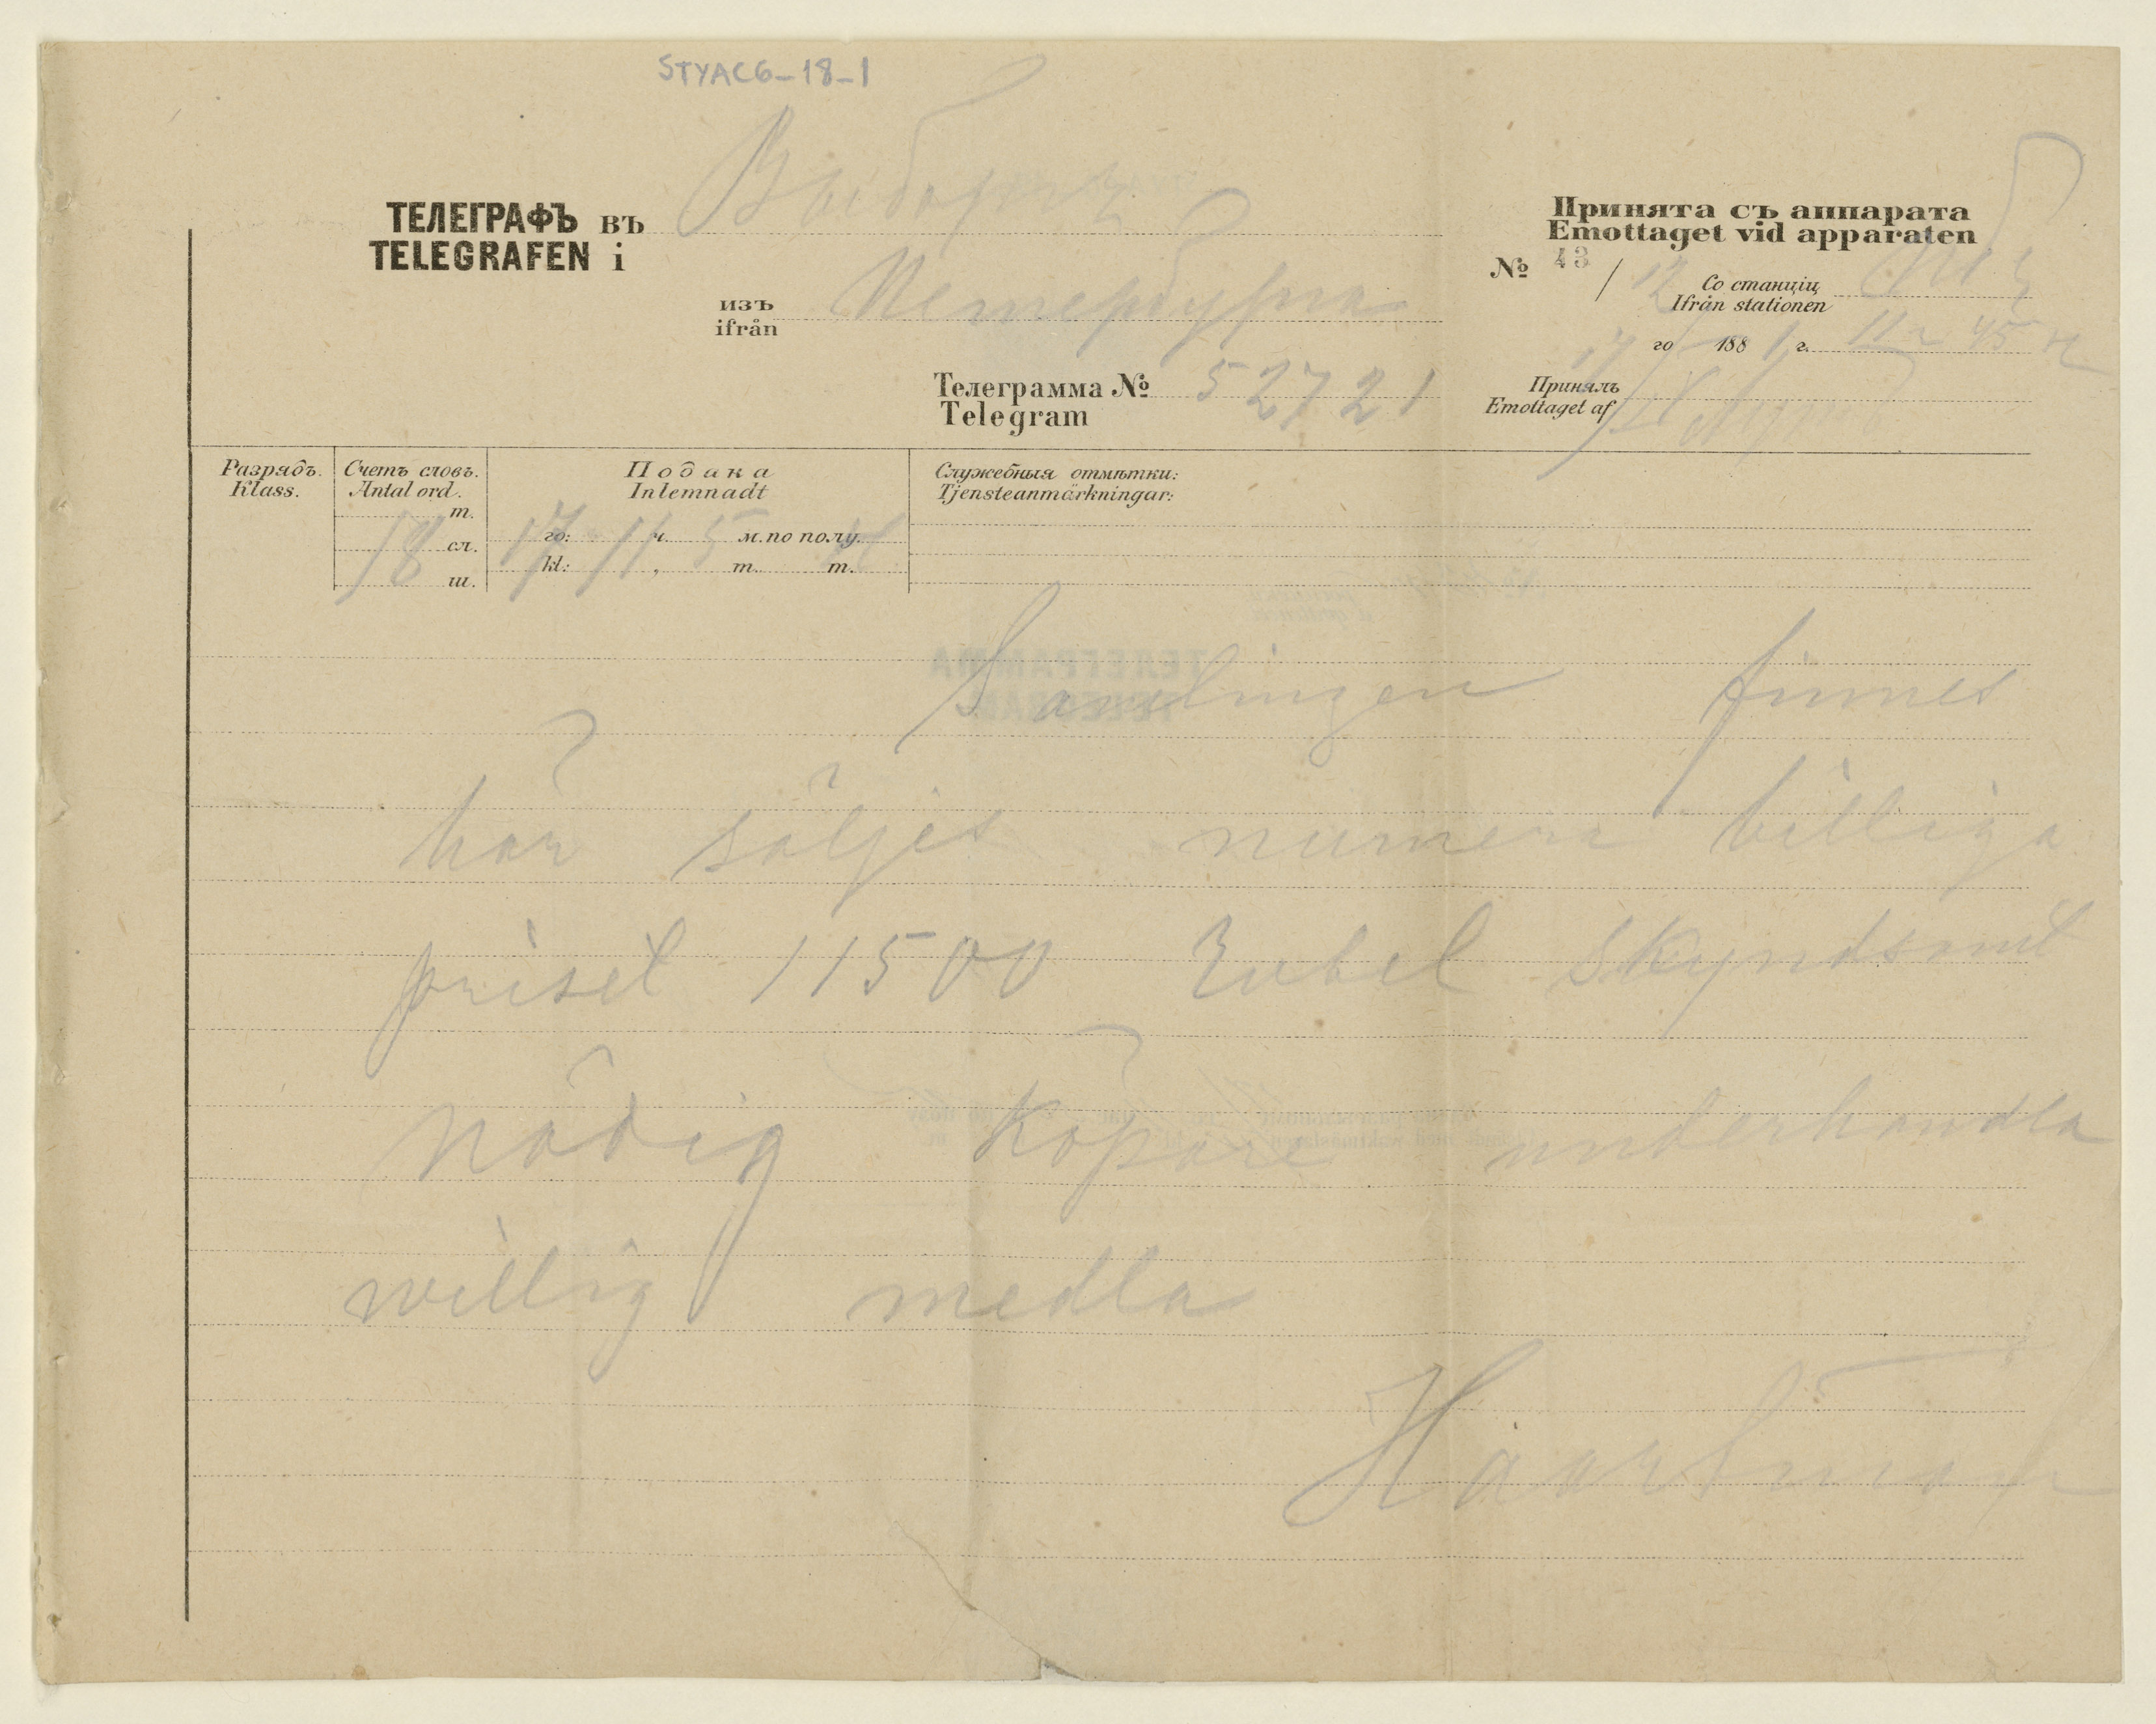 STYAC6-18-1
ТЕЛЕГРАФЪ въ Выборгъ
TELEGRAFEN i
изъ Петербурга
ifrån
Телеграмма № 52721
Telegram
Принята съ аппарата
Emottaget vid apparaten
№ 43 / 12
Со станціи
Ifrån stationen
17/ го 1881 г. 11 ч 45 м
Принялъ
Emottaget af
Разрядъ.
Klass.
Счетъ словъ.
Antal ord.
т.
18 сл.
ш.
Подана
Inlemnadt
17 го: 11 ч. 5 м. по полу.
kl: , m. m.
Служебныя отмѣтки:
Tjensteanmärkningar:
Samlingen finnes
här säljes numera billiga
priset 11500 Rubel skyndsamt
nödig köpare underhandla
willig medla